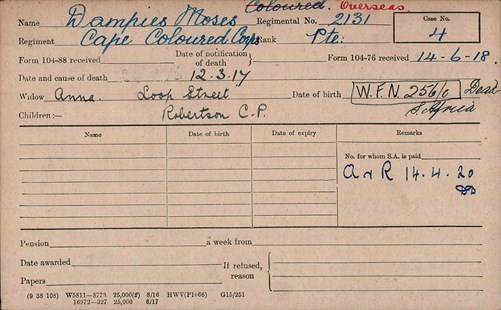 Coloured. Overseas.
Name Dampies Moses Regimental No. 2131 Case No. 4
Regiment Cape Coloured Corps Rank Pte.
Form 104-88 received Date of notification of death Form 104-76 received 14-6-18.
Date and cause of death 12.3.17
Widow Anna. Loop Street Date of birth W.F.N. 256/0 Dead
Children:— Robertson C.P. S. Africa
Name Date of birth Date of expiry Remarks
No. for whom S.A. is paid
A & R 14.4.20
Pension a week from
Date awarded If refused, reason
Papers
(9 38 108) W5811—3773 25,000(f) 8/16 HWV(P1466) G15/251
16972—327 25,000 6/17